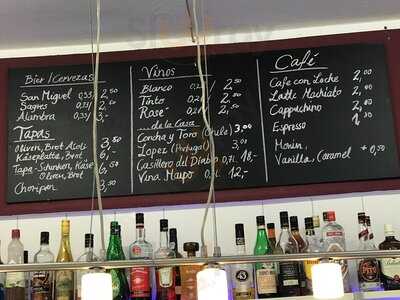 Bier / Cervezas
San Miguel 0,33/2,50
Sagres 0,33/2,50
Alambra 0,33/3,-
Tapas
Oliven, Brot Aioli 3,80
Käseplatte, Brot 6,-
Tapa-Schinken, Käse
Oliven, Brot 6,50
Choripan 3,50
Vinos
Blanco 0,2l 2,50
Tinto 0,2l 2,50
Rosé 0,2l 2,50
... de la Casa
Concha y Toro (Chile) 3,00
Lopez (Portugal) 3,00
Casillero del Diablo 0,7l. 18,-
Vina Maipo 0,7l 12,-
Café
Cafe con Leche 2,00
Latte Machiato 2,40
Cappuchino 2,20
Espresso 1,80
Monin,
Vanilla, Caramel +0,50